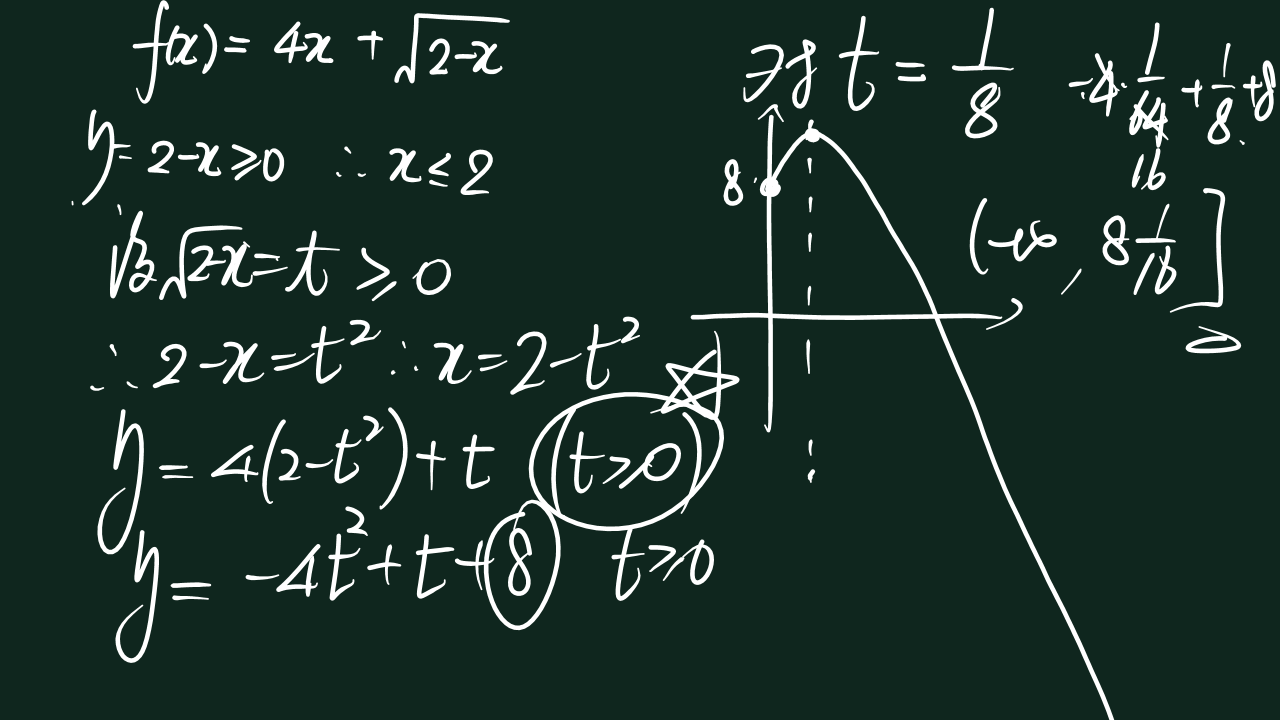 f(x) = 4x + √(2-x)
y = 2-x ≥ 0 ∴ x ≤ 2
√(2-x) = t ≥ 0
∴ 2-x = t² ∴ x = 2-t²
y = 4(2-t²) + t (t ≥ 0)
y = -4t² + t + 8 t ≥ 0
t = 1/8
-4·1/64 + 1/8 + 8
16
8
(-∞, 8 1/16]